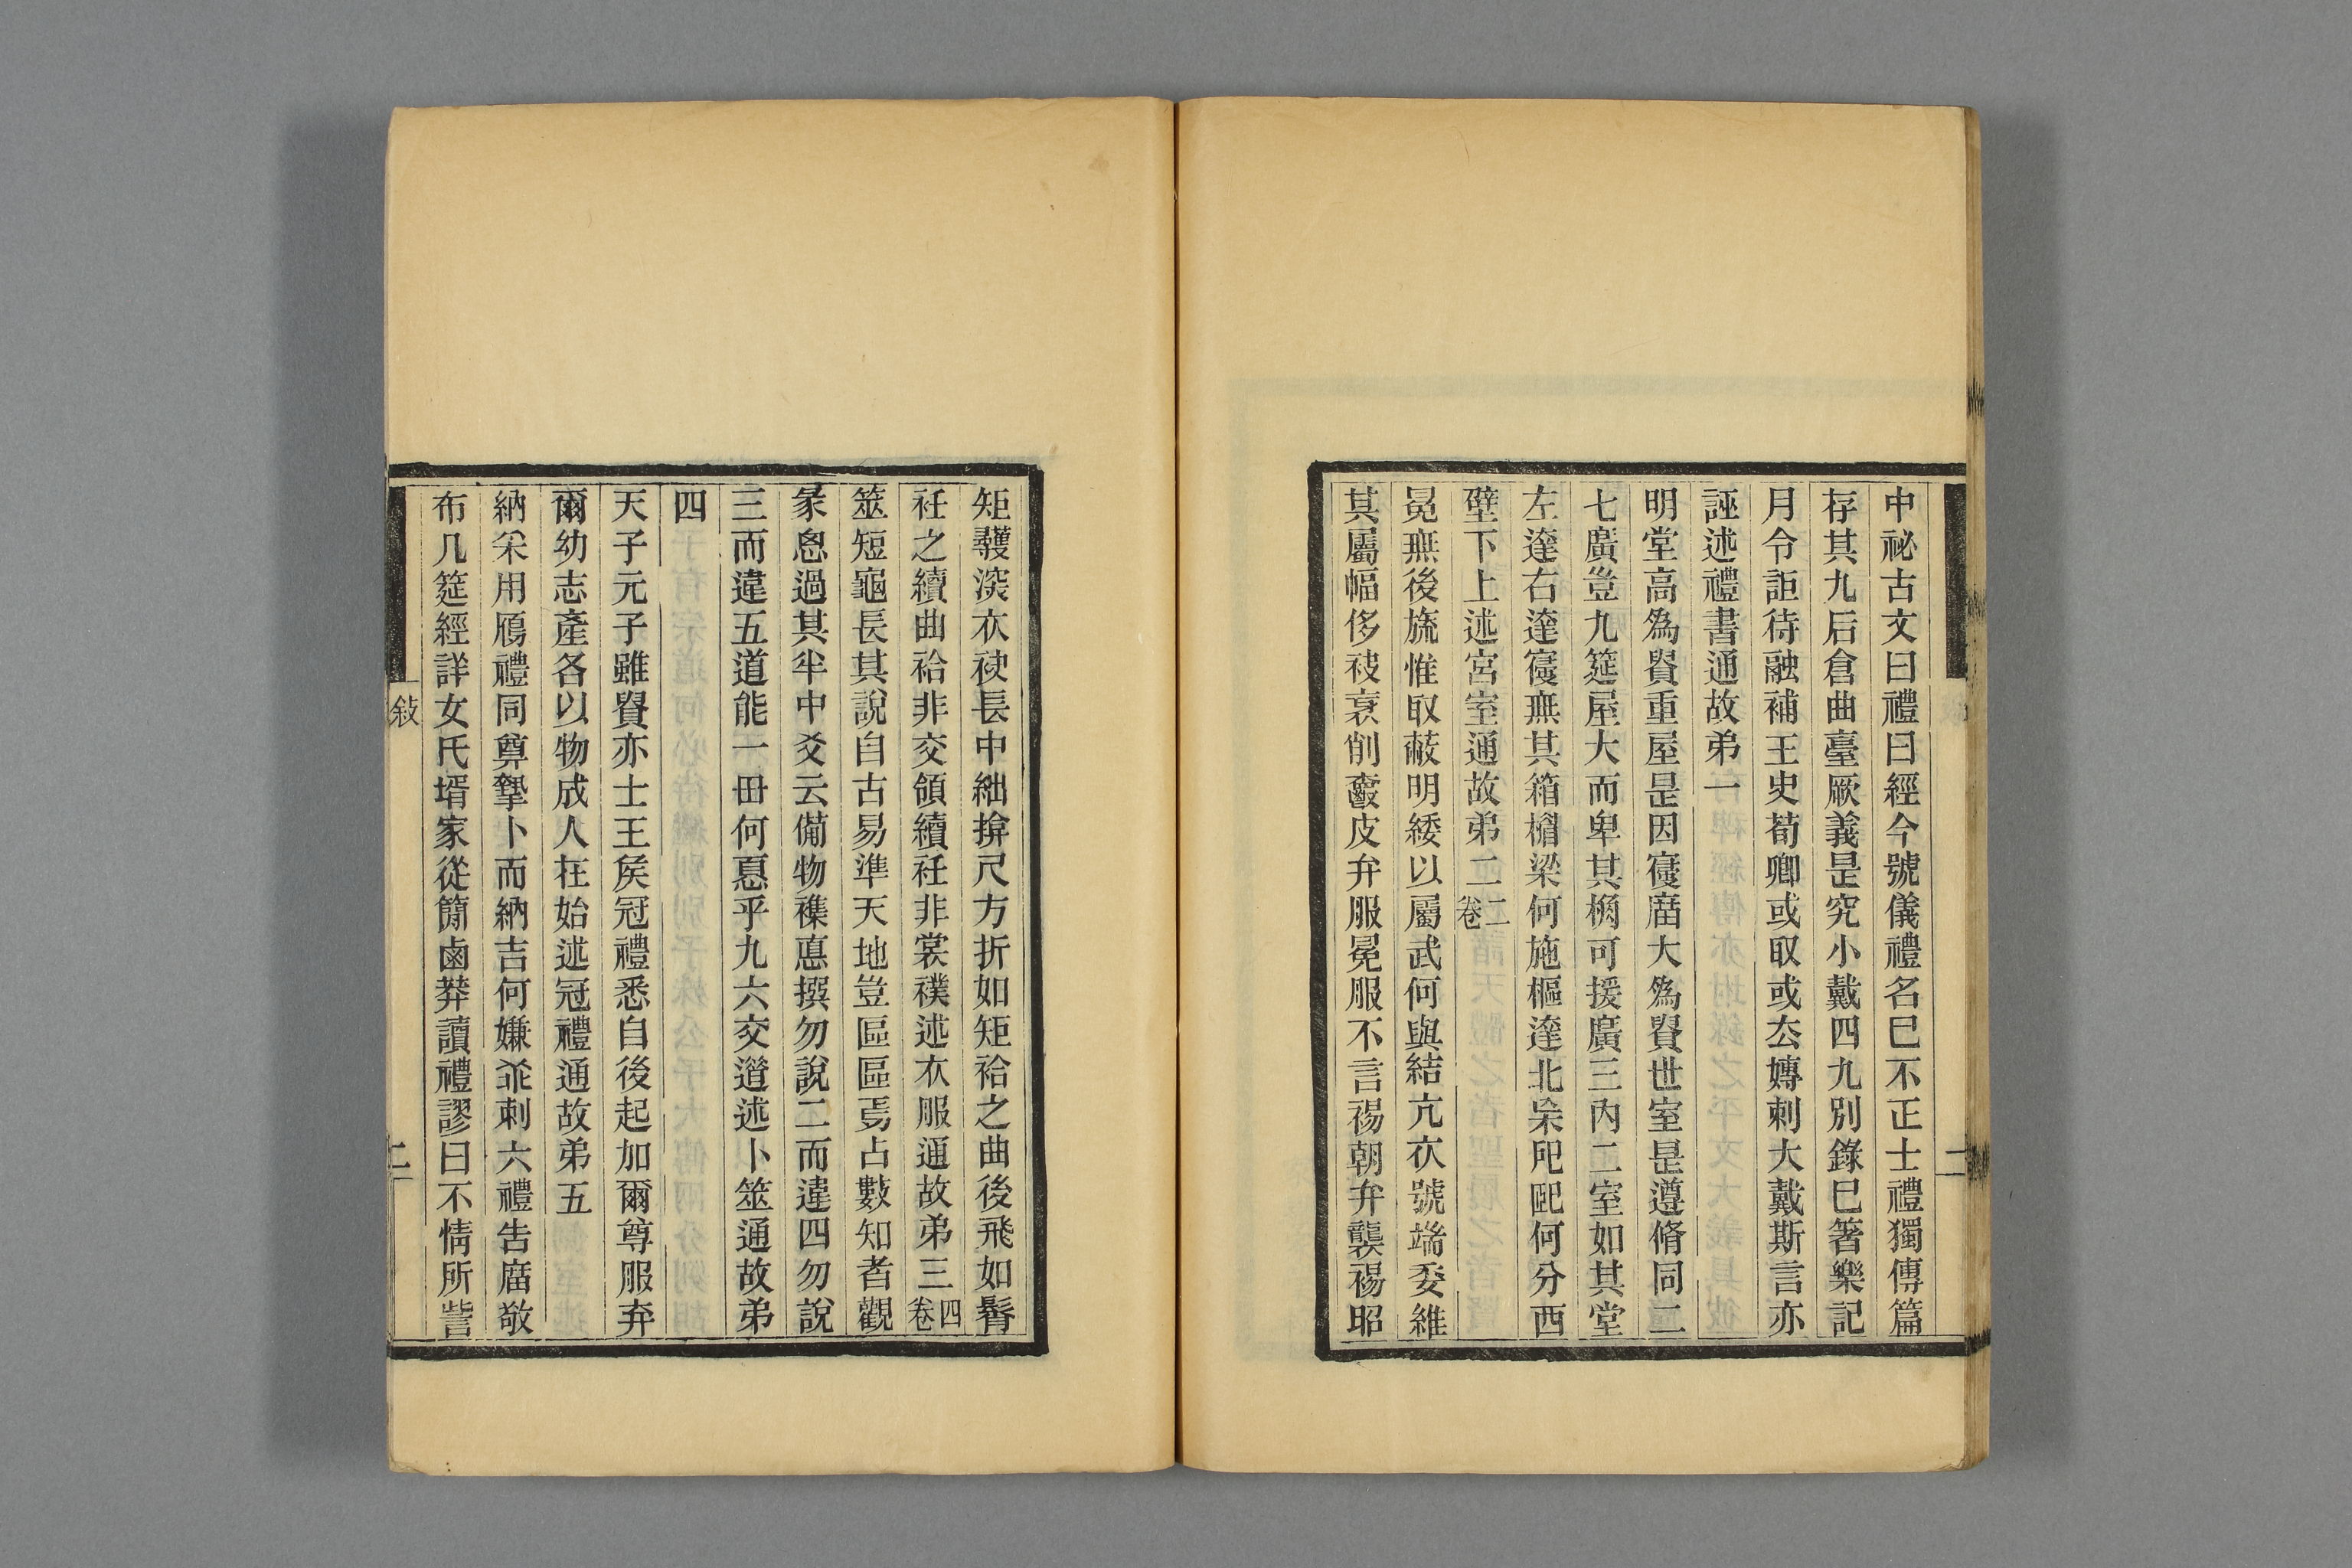 中祕古文曰禮曰經今號儀禮名巳不正士禮獨傳篇
存其九后倉曲臺厥義昰究小戴四九別錄巳箸樂記
月令詎待融補王史荀卿或取或厺嫥刺大戴斯言亦
誣述禮書通故弟一
明堂高爲貴重屋昰因寑庿大爲貴世室昰遵脩同二
七廣豈九筵屋大而卑其橢可援廣三內二室如其堂
左達右達寑無其箱楣梁何施樞達北杗戺戺何分西
壁下上述宮室通故弟二卷二
冕無後旒惟取蔽明緌以屬武何與結亢衣號端委維
其屬幅侈袂衰削皮弁服冕服不言裼朝弁襲裼昭
矩彠深衣袂長中繼揜尺方折如矩袷之曲後飛如鬋
衽之續曲袷非交領續衽非裳襆述衣服通故弟三卷四
筮短龜長其說自古易準天地豈區區焉占數知者觀
彖恖過其半中爻云備物襍悳撰勿說二而違四勿說
三而違五道能一毌何惪乎九六交遒述卜筮通故弟
四
天子元子雖貴亦士王矦冠禮悉自後起加爾尊服弃
爾幼志產各以物成人在始述冠禮通故弟五
納采用鴈禮同尊摯卜而納吉何嫌乖刺六禮告庿敬
布几筵經詳女氏壻家從簡鹵莽讀禮謬曰不情所訾
敍
二
二